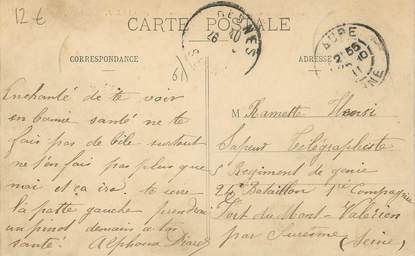 12 €
CARTE POSTALE
CORRESPONDANCE
ADRESSE
Enchanté de te voir
en bonne santé ne te
fais pas de bile surtout
ne t'en fait pas plus que
moi et ça ira. te serre
la patte gauche prendrai
un pinot demain a ta
santé. Alphonse
M Ramette Henri
Sapeur Télégraphiste
5 Regiment de genie
24e Bataillon 1re Compagnie
Fort du Mont-Valérien
par Suresne
(Seine)